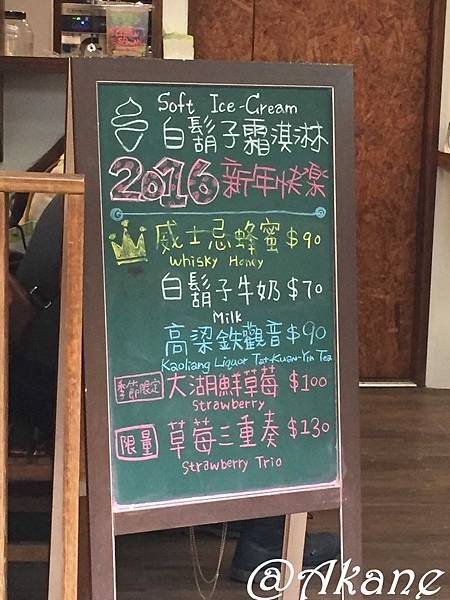 Soft Ice-Cream
白鬍子霜淇淋
2016新年快樂
威士忌蜂蜜$90
Whisky Honey
白鬍子牛奶$70
Milk
高梁鉄觀音$90
Kaoliang Liquor Tat-Kuan-Yin Tea
季節限定 大湖鮮草莓 $100
Strawberry
限量 草莓三重奏 $130
Strawberry Trio
@Akane